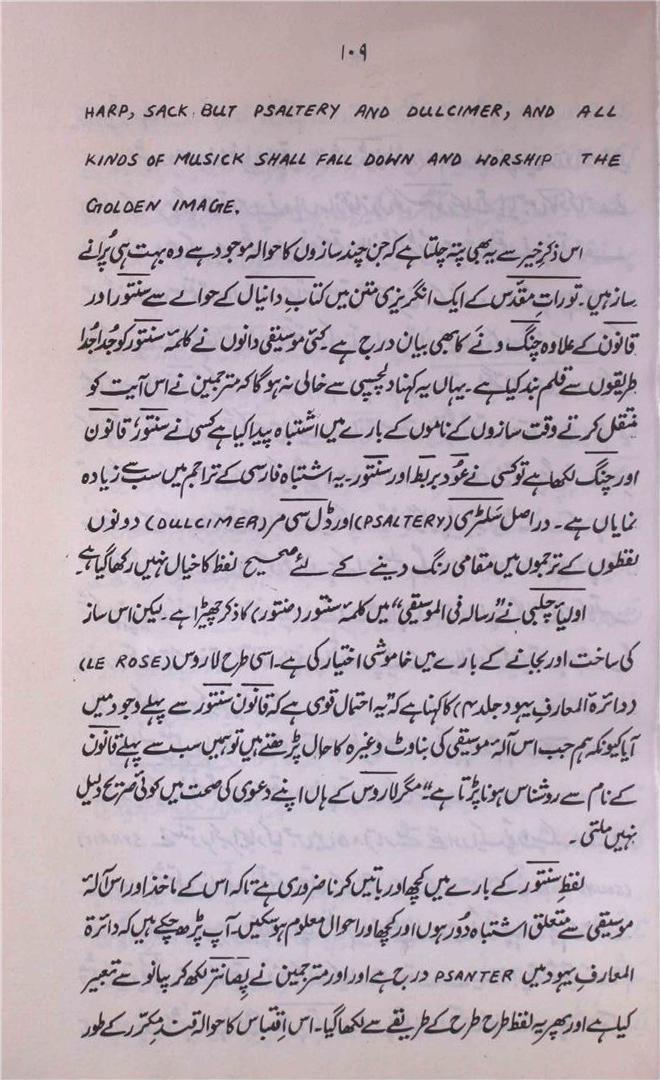 ۱۰۹
HARP, SACK BUT PSALTERY AND DULCIMER, AND ALL
KINDS OF MUSICK SHALL FALL DOWN AND WORSHIP THE
GOLDEN IMAGE.
اس ذکرِ خیر سے یہ بھی پتہ چلتا ہے کہ جن چند سازوں کا حوالہ موجود ہے وہ بہت ہی پُرانے
ساز ہیں۔ تورات مقدّس کے ایک انگریزی متن میں کتاب دانیال کے حوالے سے سنتور اور
قانون کے علاوہ چنگ و نَے کا بھی بیان درج ہے۔ کئی موسیقی دانوں نے کلمۂ سنتور کو جُدا جُدا
طریقوں سے قلم بند کیا ہے۔ یہاں یہ کہنا دلچسپی سے خالی نہ ہوگا کہ مترجمین نے اس آیت کو
منتقل کرتے وقت سازوں کے ناموں کے بارے میں اشتباہ پیدا کیا ہے کسی نے سنتور، قانون
اور چنگ لکھا ہے تو کسی نے عُود بربط اور سنتور۔ یہ اشتباہ فارسی کے تراجم میں سب سے زیادہ
نمایاں ہے۔ دراصل سَلٹری (PSALTERY) اور ڈل سی مر (DULCIMER) دونوں
لفظوں کے ترجموں میں مقامی رنگ دینے کے لئے صحیح لفظ کا خیال نہیں رکھا گیا ہے۔
اولیأ چلبی نے "رسالہ فی الموسیقی" میں کلمۂ سنتور (صنتور) کا ذکر چھیڑا ہے۔ لیکن اس ساز
کی ساخت اور بجانے کے بارے میں خاموشی اختیار کی ہے۔ اسی طرح لاروس (LE ROSE)
(دائرۃ المعارفِ یہود جلد ۴) کا کہنا ہے کہ "یہ احتمال قوی ہے کہ قانون سنتور سے پہلے وجود میں
آیا کیونکہ ہم جب اس آلۂ موسیقی کی بناوٹ وغیرہ کا حال پڑھتے ہیں تو ہمیں سب سے پہلے قانون
کے نام سے روشناس ہونا پڑتا ہے" مگر لاروس کے ہاں اپنے دعویٰ کی صحت میں کوئی صریح دلیل
نہیں ملتی۔
لفظِ سنتور کے بارے میں کچھ اور باتیں کرنا ضروری ہے تاکہ اس کے ماخذ اور اس آلۂ
موسیقی سے متعلق اشتباہ دُور ہوں اور کچھ اور احوال معلوم ہو سکیں۔ آپ پڑھ چکے ہیں کہ دائرۃ
المعارفِ یہود میں PSANTER درج ہے اور اور مترجمین نے پصانتر لکھ کر پیانو سے تعبیر
کیا ہے اور پھر یہ لفظ طرح طرح کے طریقے سے لکھا گیا۔ اس اقتباس کا حوالہ قندِ مکرّر کے طور